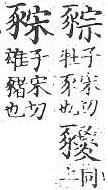 子宋切
牡豕也
上同
子宋切
雄豬也